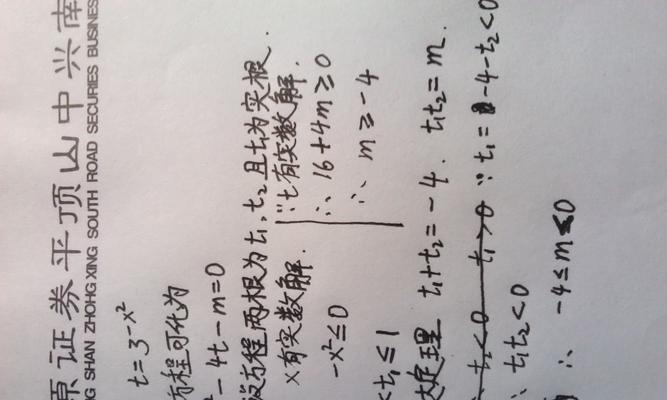 原证券平顶山中兴南
NG SHAN ZHOHG XING SOUTH ROAD SECURIES BUSINES
t=3^{-x²}
方程可化为
² - 4t - m = 0
设方程两根为t₁, t₂ 且t₁为实根.
x有实数解. ∵t有实数解.
-x² ≤ 0 ∴ 16+4m ≥ 0
∴ m ≥ -4
<t₁ ≤ 1
达定理 t₁+t₂ = -4. t₁t₂ = m.
t₂<0 t₁>0 ∵ t₁ = -4-t₂<0
∴ t₁t₂<0
∴ -4≤m≤0